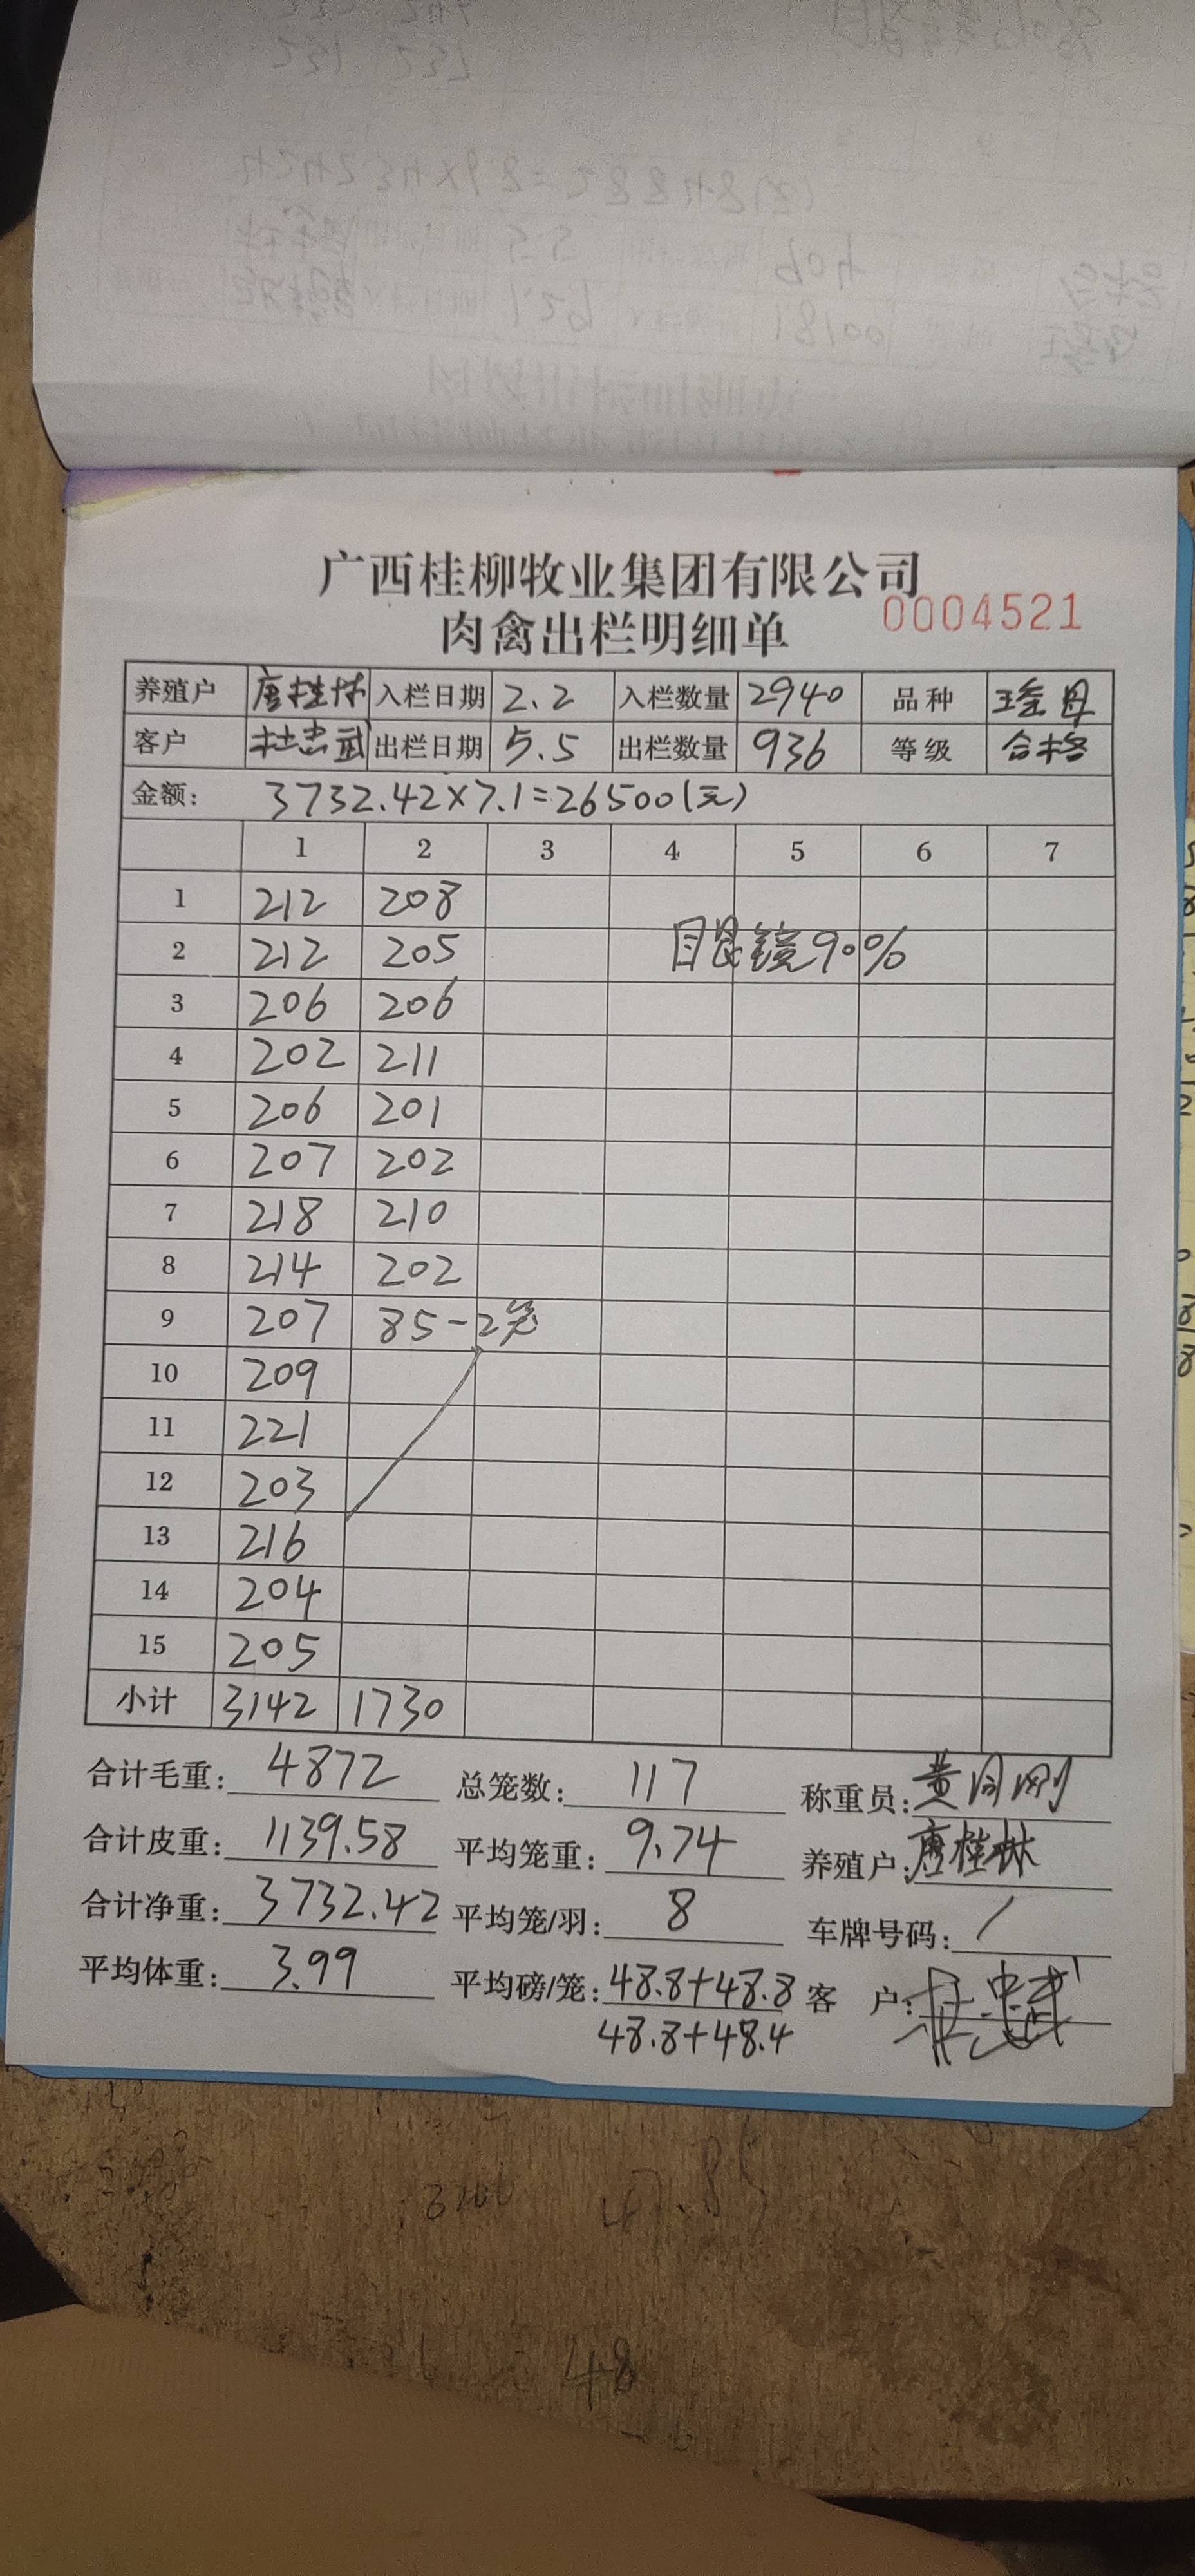 广西桂柳牧业集团有限公司
肉禽出栏明细单 0004521
养殖户 唐桂林 入栏日期 2.2 入栏数量 2940 品种 母
客户 杜忠武 出栏日期 5.5 出栏数量 936 等级 合格
金额: 3732.42×7.1=26500(元)
1 2 3 4 5 6 7
1 212 208
2 212 205 眼镜90%
3 206 206
4 202 211
5 206 201
6 207 202
7 218 210
8 214 202
9 207 85-2笼
10 209
11 221
12 203
13 216
14 204
15 205
小计 3142 1730
合计毛重: 4872 总笼数: 117 称重员: 黄
合计皮重: 1139.58 平均笼重: 9.74 养殖户: 唐桂林
合计净重: 3732.42 平均笼/羽: 8 车牌号码: /
平均体重: 3.99 平均磅/笼: 48.8+48.8 客 户:
48.8+48.4
48